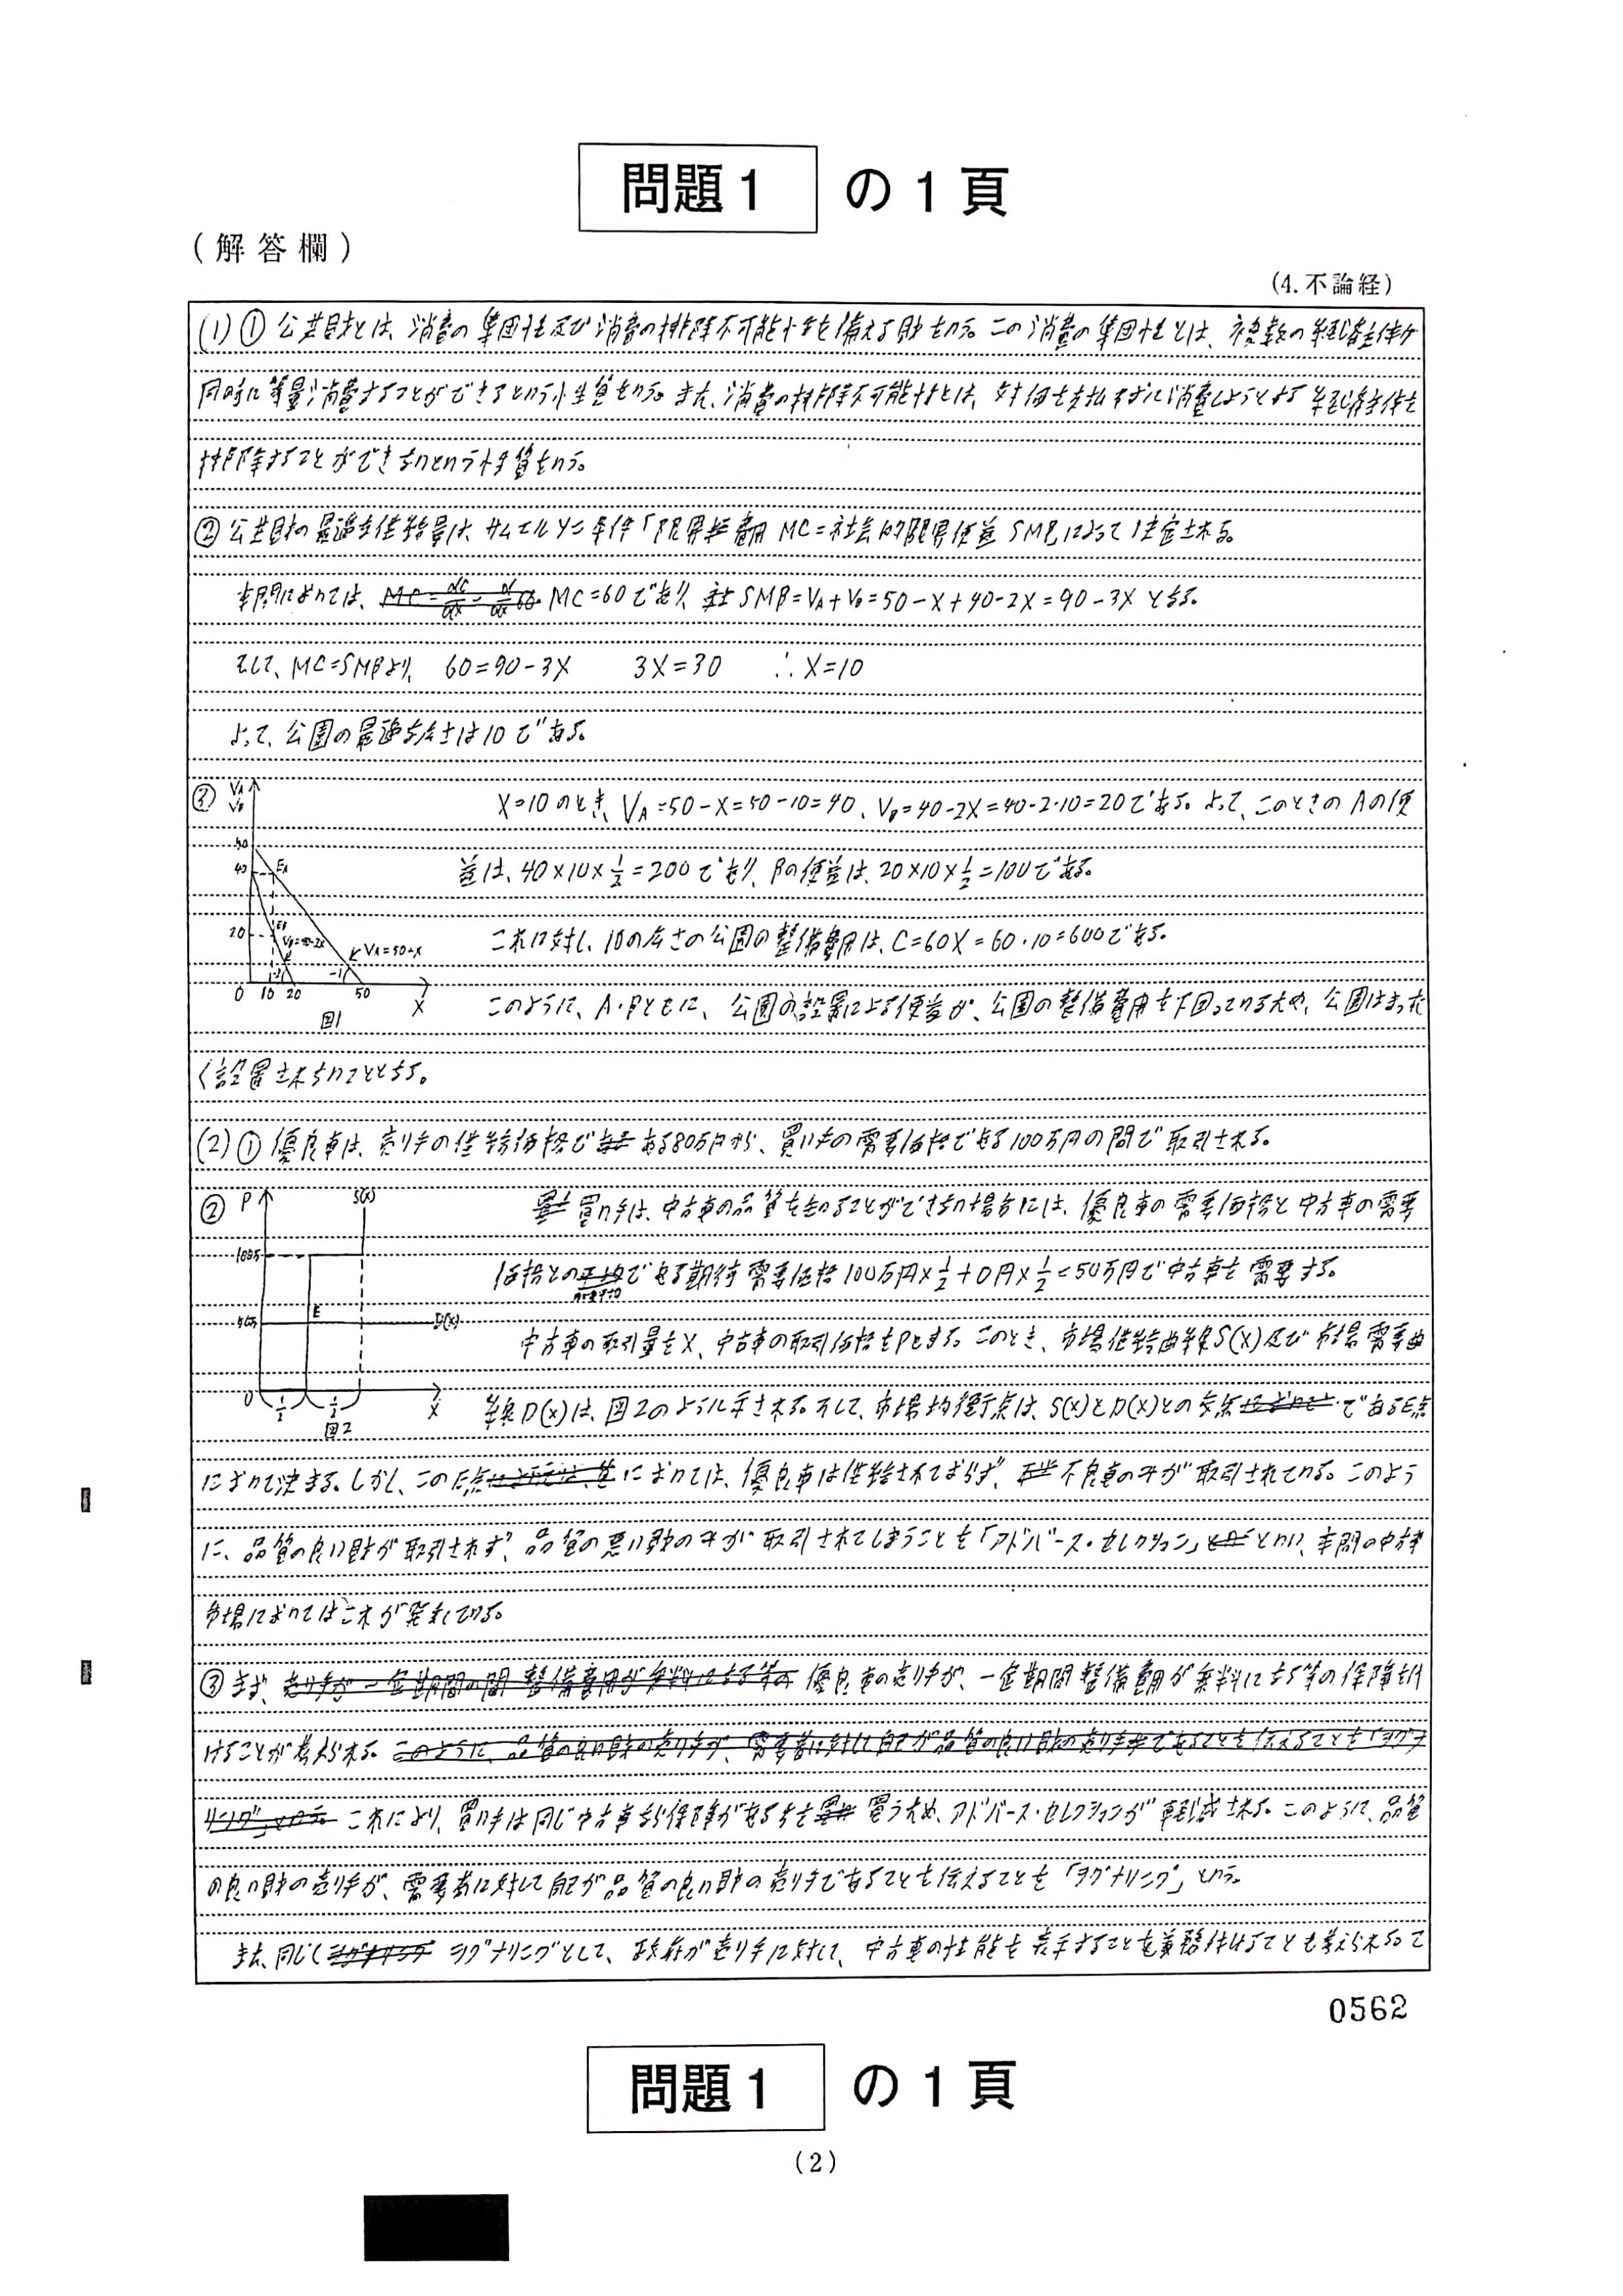 問題1 の1頁
(解答欄)
(4.不論経)
(1)① 公共財とは、消費の集団性及び消費の排除不可能性を備える財をいう。この消費の集団性とは、複数の経済主体が
同時に等量消費することができるという性質をいう。また、消費の排除不可能性とは、対価を支払わずに消費しようとする経済主体を
排除することができないという性質をいう。
② 公共財の最適な供給量は、サムエルソン条件「限界費用 MC=社会的限界便益 SMB」によって決定される。
本問においては、MC=60であり、SMB=VA+VB=50-X+40-2X=90-3Xとなる。
そして、MC=SMBより、 60=90-3X 3X=30 ∴X=10
よって、公園の最適な広さは10である。
③ VA VB 50 40 20 EA EB VB=40-2X VA=50-X 0 10 20 50 X 図1
X=10のとき、VA=50-X=50-10=40、VB=40-2X=40-2・10=20である。よって、このときのAの便
益は、40×10×1/2=200であり、Bの便益は、20×10×1/2=100である。
これに対し、10の広さの公園の整備費用は、C=60X=60・10=600である。
このように、A・Bともに、公園の設置による便益が、公園の整備費用を下回っているため、公園はまった
く設置されないこととなる。
(2)① 優良車は、売り手の供給価格である80万円から、買い手の需要価格である100万円の間で取引される。
② P S(X) E D(X) 0 1/2 1/2 X 図2
買い手は、中古車の品質を知ることができない場合には、優良車の需要価格と中古車の需要
価格との である期待需要価格 100万円×1/2+0円×1/2=50万円で中古車を需要する。
中古車の取引量をX、中古車の取引価格をPとする。このとき、市場供給曲線S(X)及び市場需要曲
線D(X)は、図2のように示される。そして、市場均衡点は、S(X)とD(X)との交点であるE点
において決まる。しかし、このE点においては、優良車は供給されておらず、不良車のみが取引されている。このよう
に、品質の良い財が取引されず、品質の悪い財のみが取引されてしまうことを「アドバース・セレクション」といい、本問の中古車
市場においてはこれが発生している。
③ まず、優良車の売り手が、一定期間整備費用が無料になる等の保障を付
けることが考えられる。
これにより、買い手は同じ中古車なら保障がある車を買うため、アドバース・セレクションが軽減される。このように、品質
の良い財の売り手が、需要者に対して自己が品質の良い財の売り手であることを伝えることを「シグナリング」という。
また、同じくシグナリングとして、政府が売り手に対して、中古車の性能を表示することを義務付けることも考えられる。こ
0562
問題1 の1頁
(2)